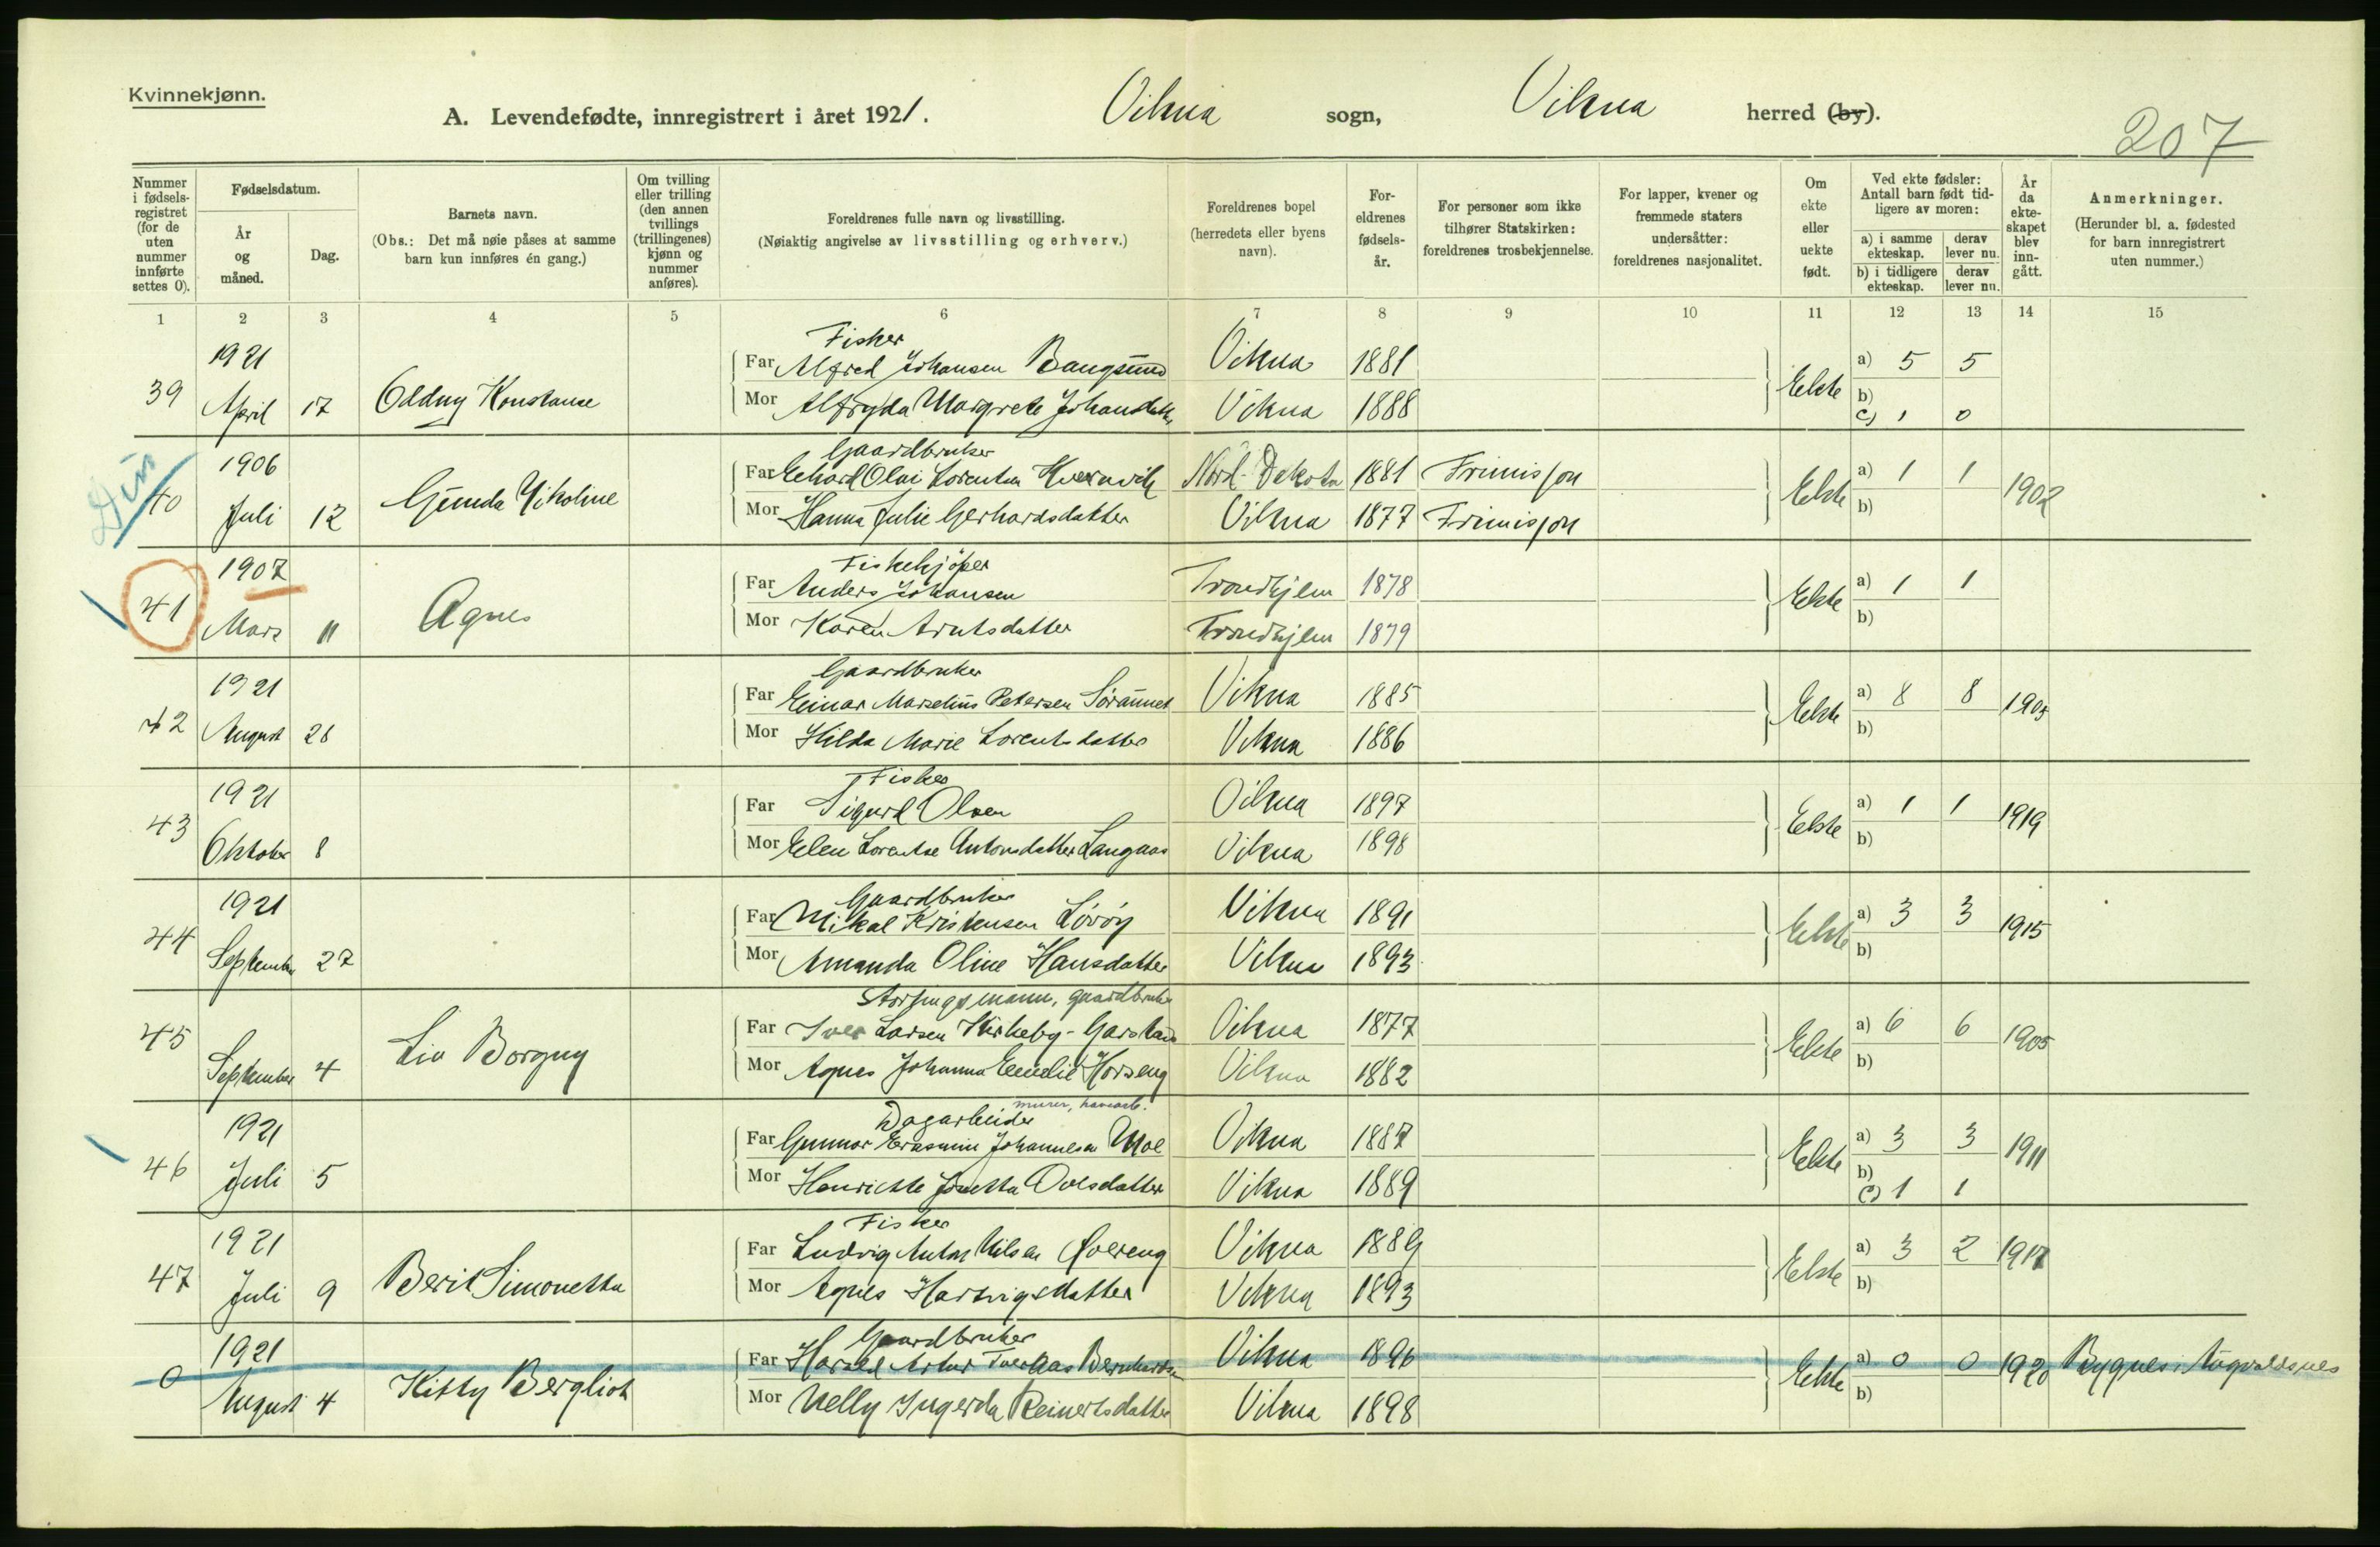 Kvinnekjønn.
A. Levendefødte, innregistrert i året 1921. Vikna sogn, Vikna herred (by).
207
Nummer i fødselsregistret (for de uten nummer innførte settes 0).
Fødselsdatum.
År og måned.
Dag.
Barnets navn.
(Obs.: Det må nøie påses at samme barn kun innføres én gang.)
Om tvilling eller trilling (den annen tvillings (trillingenes) kjønn og nummer anføres).
Foreldrenes fulle navn og livsstilling.
(Nøiaktig angivelse av livsstilling og erhverv.)
Foreldrenes bopel (herredets eller byens navn).
Foreldrenes fødselsår.
For personer som ikke tilhører Statskirken: foreldrenes trosbekjennelse.
For lapper, kvener og fremmede staters undersåtter: foreldrenes nasjonalitet.
Om ekte eller uekte født.
Ved ekte fødsler: Antall barn født tidligere av moren:
a) i samme ekteskap. derav lever nu.
b) i tidligere ekteskap. derav lever nu.
År da ekteskapet blev inngått.
Anmerkninger.
(Herunder bl. a. fødested for barn innregistrert uten nummer.)
1 2 3 4 5 6 7 8 9 10 11 12 13 14 15
Fisker
39 1921 April 17 Oddny Konstanse
Far Alfred Johansen Bangsund Vikna 1881 Ekte a) 5 5
Mor Alfryda Margrete Johansdatter Vikna 1888 b)
c) 1 0
Gaardbruker
40 1906 Juli 12 Gunda Nikoline
Far Olai Lorentsen Nord-Dakota 1881 Frimisjon Ekte a) 1 1 1902
Mor Hanna Julie Gerhardsdatter Vikna 1877 Frimisjon b)
Fiskekjøper
41 1907 Mars 11 Agnes
Far Anders Johansen Trondhjem 1878 Ekte a) 1 1
Mor Karen Arntsdatter Trondhjem 1879 b)
Gaardbruker
42 1921 August 28
Far Einar Marselius Petersen Vikna 1885 Ekte a) 8 8
Mor Hilda Marie Lorentsdatter Vikna 1886 b)
Fisker
43 1921 Oktober 8
Far Sigurd Olsen Vikna 1897 Ekte a) 1 1 1919
Mor Elen Lorentse Antonsdatter Langaas Vikna 1898 b)
Gaardbruker
44 1921 September 27
Far Mikal Kristensen Lørøy Vikna 1891 Ekte a) 3 3 1915
Mor Amanda Oline Hansdatter Vikna 1893 b)
Stortingsmann, gaardbruker
45 September 4 Liv Borgny
Far Iver Larsen Kirkeby-Garstad Vikna 1877 Ekte a) 6 6 1905
Mor Agnes Johanna Emelie Horseng Vikna 1882 b)
Dagarbeider murer, havearb.
46 1921 Juli 5
Far Gunnar Erasmin Johannesen Moe Vikna 1887 Ekte a) 3 3 1911
Mor Henriette Josetta Ovesdatter Vikna 1889 b)
c) 1 1
Fisker
47 1921 Juli 9 Berit Simonetta
Far Ludvig Anton Nilsen Vikna 1889 Ekte a) 3 2 1917
Mor Agnes Hartvigsdatter Vikna 1893 b)
Gaardbruker
0 1921 August 4 Kitty Bergliot
Far Harald Artur Tveraas Vikna 1896 Ekte a) 0 0 1920 Bygnes i Augvaldsnes
Mor Nelly Ingerda Reinertsdatter Vikna 1898 b)